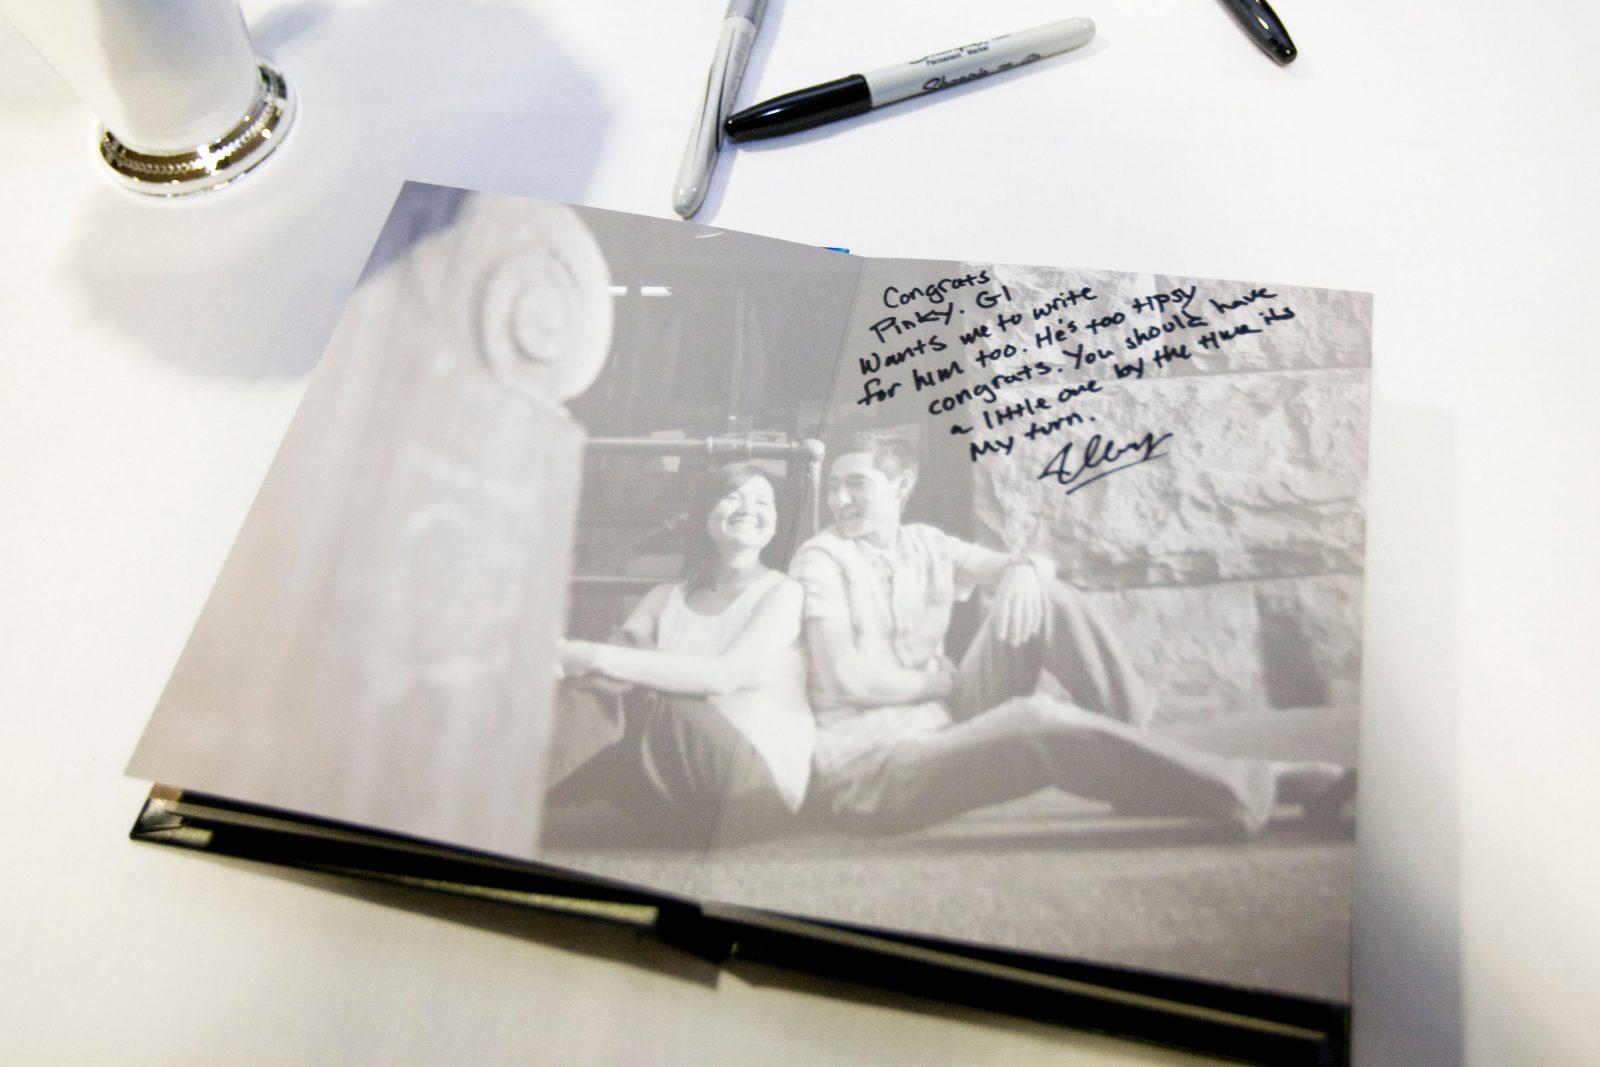 Permanent Marker
Sharpie
Congrats
Pinky. GI
wants me to write
for him too. He's too tipsy
congrats. You should have
a little one by the time its
My turn.